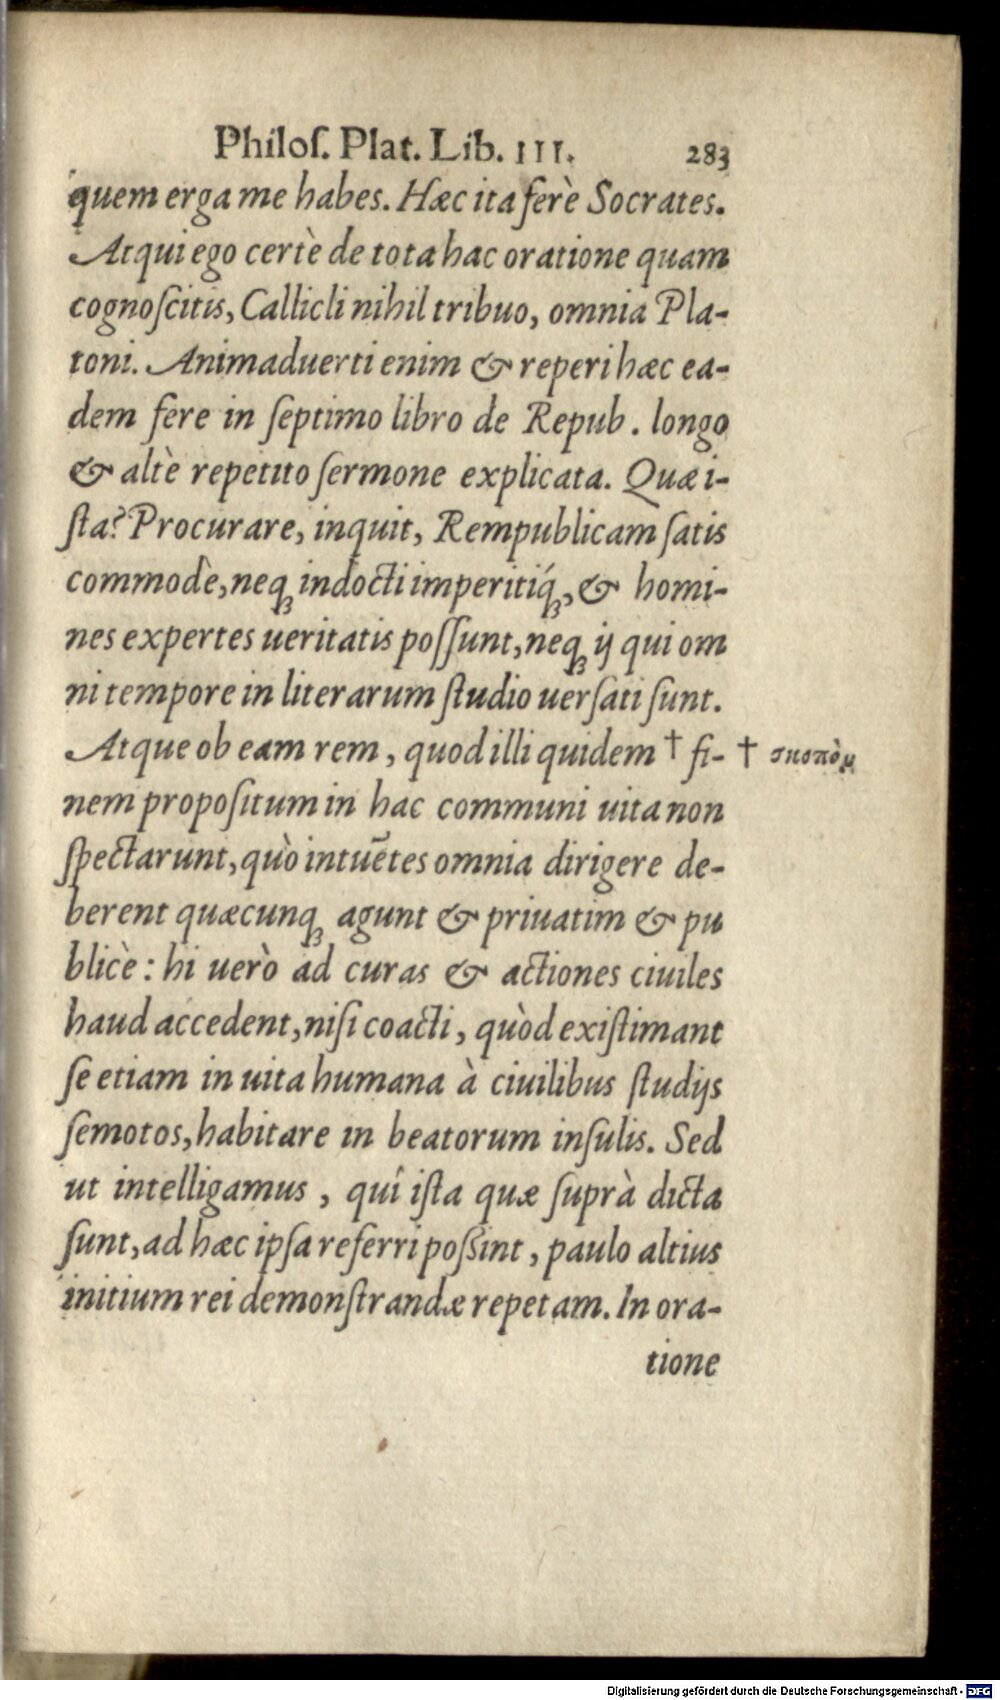 Philoſ. Plat. Lib. III. 283
quem erga me habes. Hæc ita ferè Socrates.
Atqui ego certè de tota hac oratione quam
cognoſcitis, Callicli nihil tribuo, omnia Pla-
toni. Animaduerti enim & reperi hæc ea-
dem fere in ſeptimo libro de Repub. longo
& altè repetito ſermone explicata. Quæ i-
ſta? Procurare, inquit, Rempublicam ſatis
commodè, neqꝫ indocti imperitiq́ꝫ, & homi-
nes expertes ueritatis poſſunt, neqꝫ ij qui om
ni tempore in literarum ſtudio uerſati ſunt.
Atque ob eam rem, quod illi quidem † fi- † σκοπὸν
nem propoſitum in hac communi uita non
ſpectarunt, quò intuẽtes omnia dirigere de-
berent quæcunqꝫ agunt & priuatim & pu
blicè: hi uerò ad curas & actiones ciuiles
haud accedent, niſi coacti, quòd exiſtimant
ſe etiam in uita humana à ciuilibus ſtudijs
ſemotos, habitare in beatorum inſulis. Sed
ut intelligamus, quî iſta quæ ſuprà dicta
ſunt, ad hæc ipſa referri poßint, paulo altius
initium rei demonſtrandæ repetam. In ora-
tione
Digitalisierung gefördert durch die Deutsche Forschungsgemeinschaft - DFG